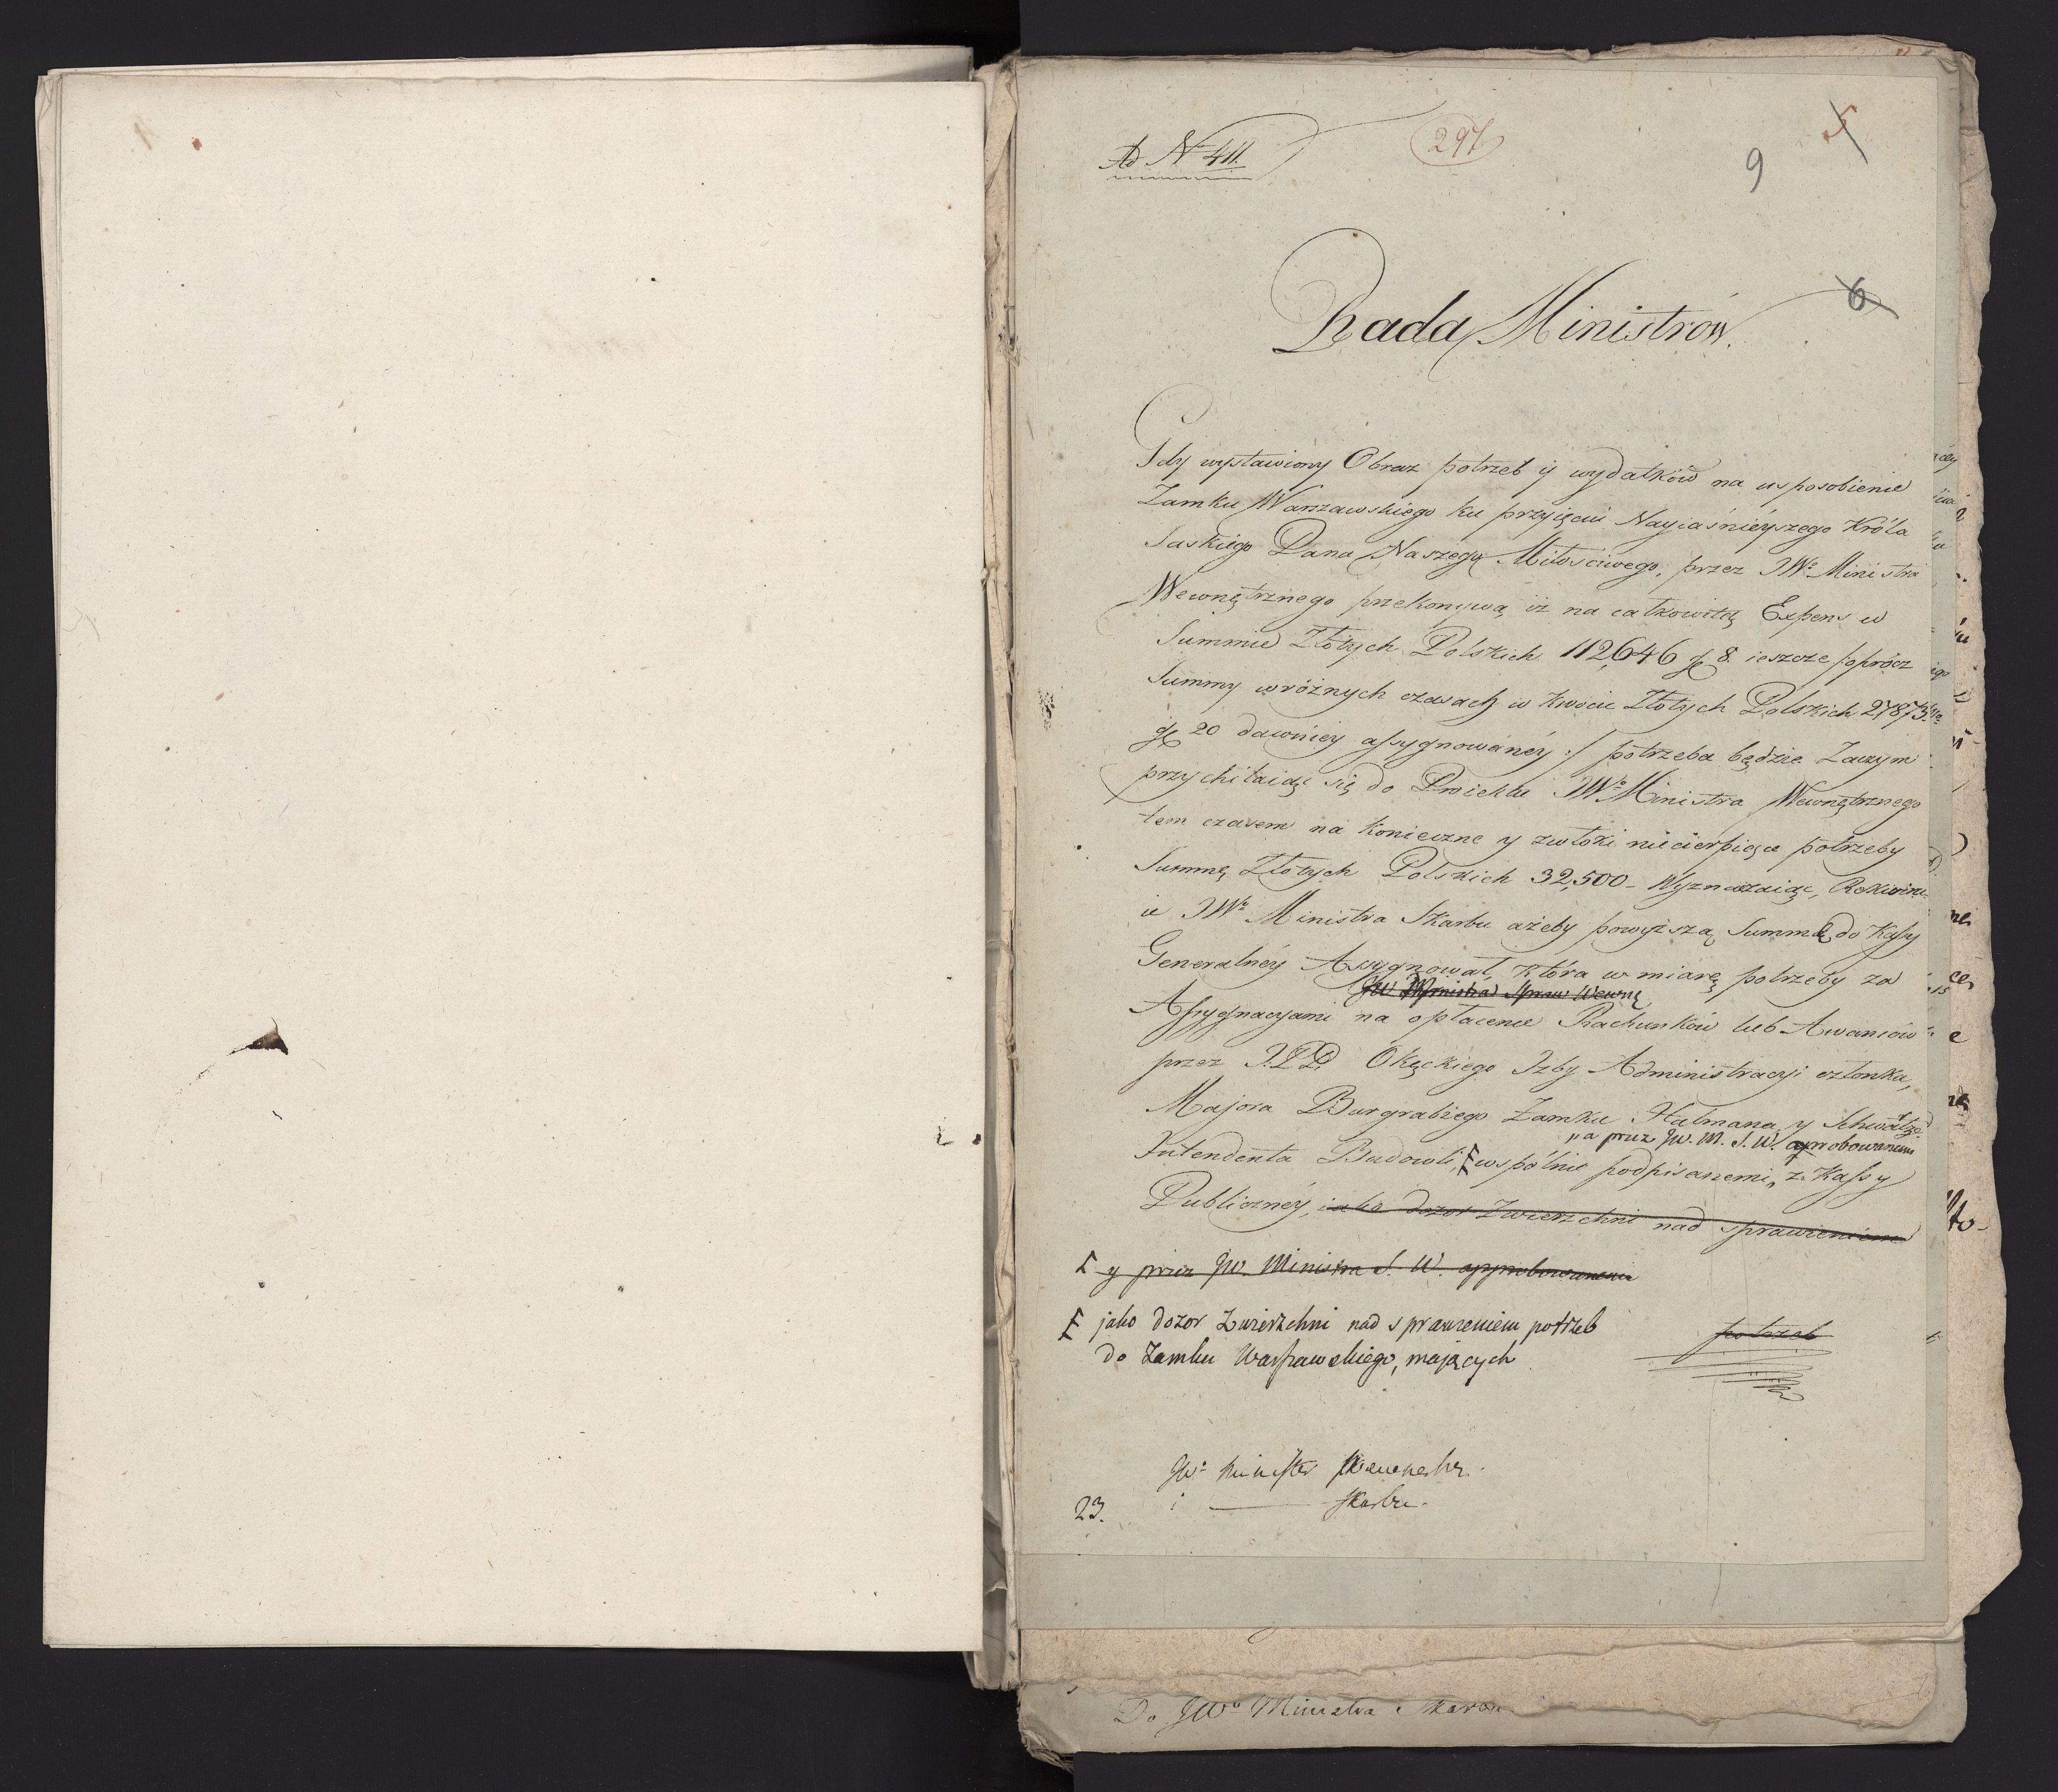 Ad Nº 411.
297
5
9
6
Rada Ministrów.
Gdy wystawiony Obraz potrzeb y wydatków na usposobienie
Zamku Warszawskiego ku przyięciu Nayiaśnieyszego Króla
Saskiego Pana Naszego Miłościwego, przez JWº Ministra
Wewnętrznego przekonywa, iż na całkowitą Expens w
Summie Złotych Polskich 112,646 gr 8. ieszcze /oprócz
Summy w różnych czasach w kwocie Złotych Polskich 27873
gr 20 dawniey assygnowanéy :/ potrzeba będzie. Zaczym
przychilaiąc się do Proiektu JWº Ministra Wewnętrznego
tem czasem na konieczne y zwłoki niecierpiące potrzeby
Summę Złotych Polskich 32,500 - Wyznaczaiąc, Rekwiru-
ie JWº Ministra Skarbu ażeby powyższą Summę do Kassy
Generalnéy Assygnował, która w miarę potrzeby za
JW Ministra Spraw Wewnę
Assygnacyami na opłacenie Rachunków lub Awansów
przez J.PP. Okęckiego Izby Administracyi członka,
Majora Burgrabiego Zamku Halmana y Schwatze
„a przez JW. M. S. W. aprobowanemi
Intendenta Budowli, wspólnie podpisanemi „ z Kassy
Publicznéy, iako dozor Zwierzchni nad sprawieniem
y przez JW. Ministra S. W. approbowanemi
jako dozor Zwierzchni nad sprawieniem potrzeb
potrzeb
do Zamku Warszawskiego, mających
JWº Minister
23. i ——— Skarbu.
Do JWº Ministra Skarbu